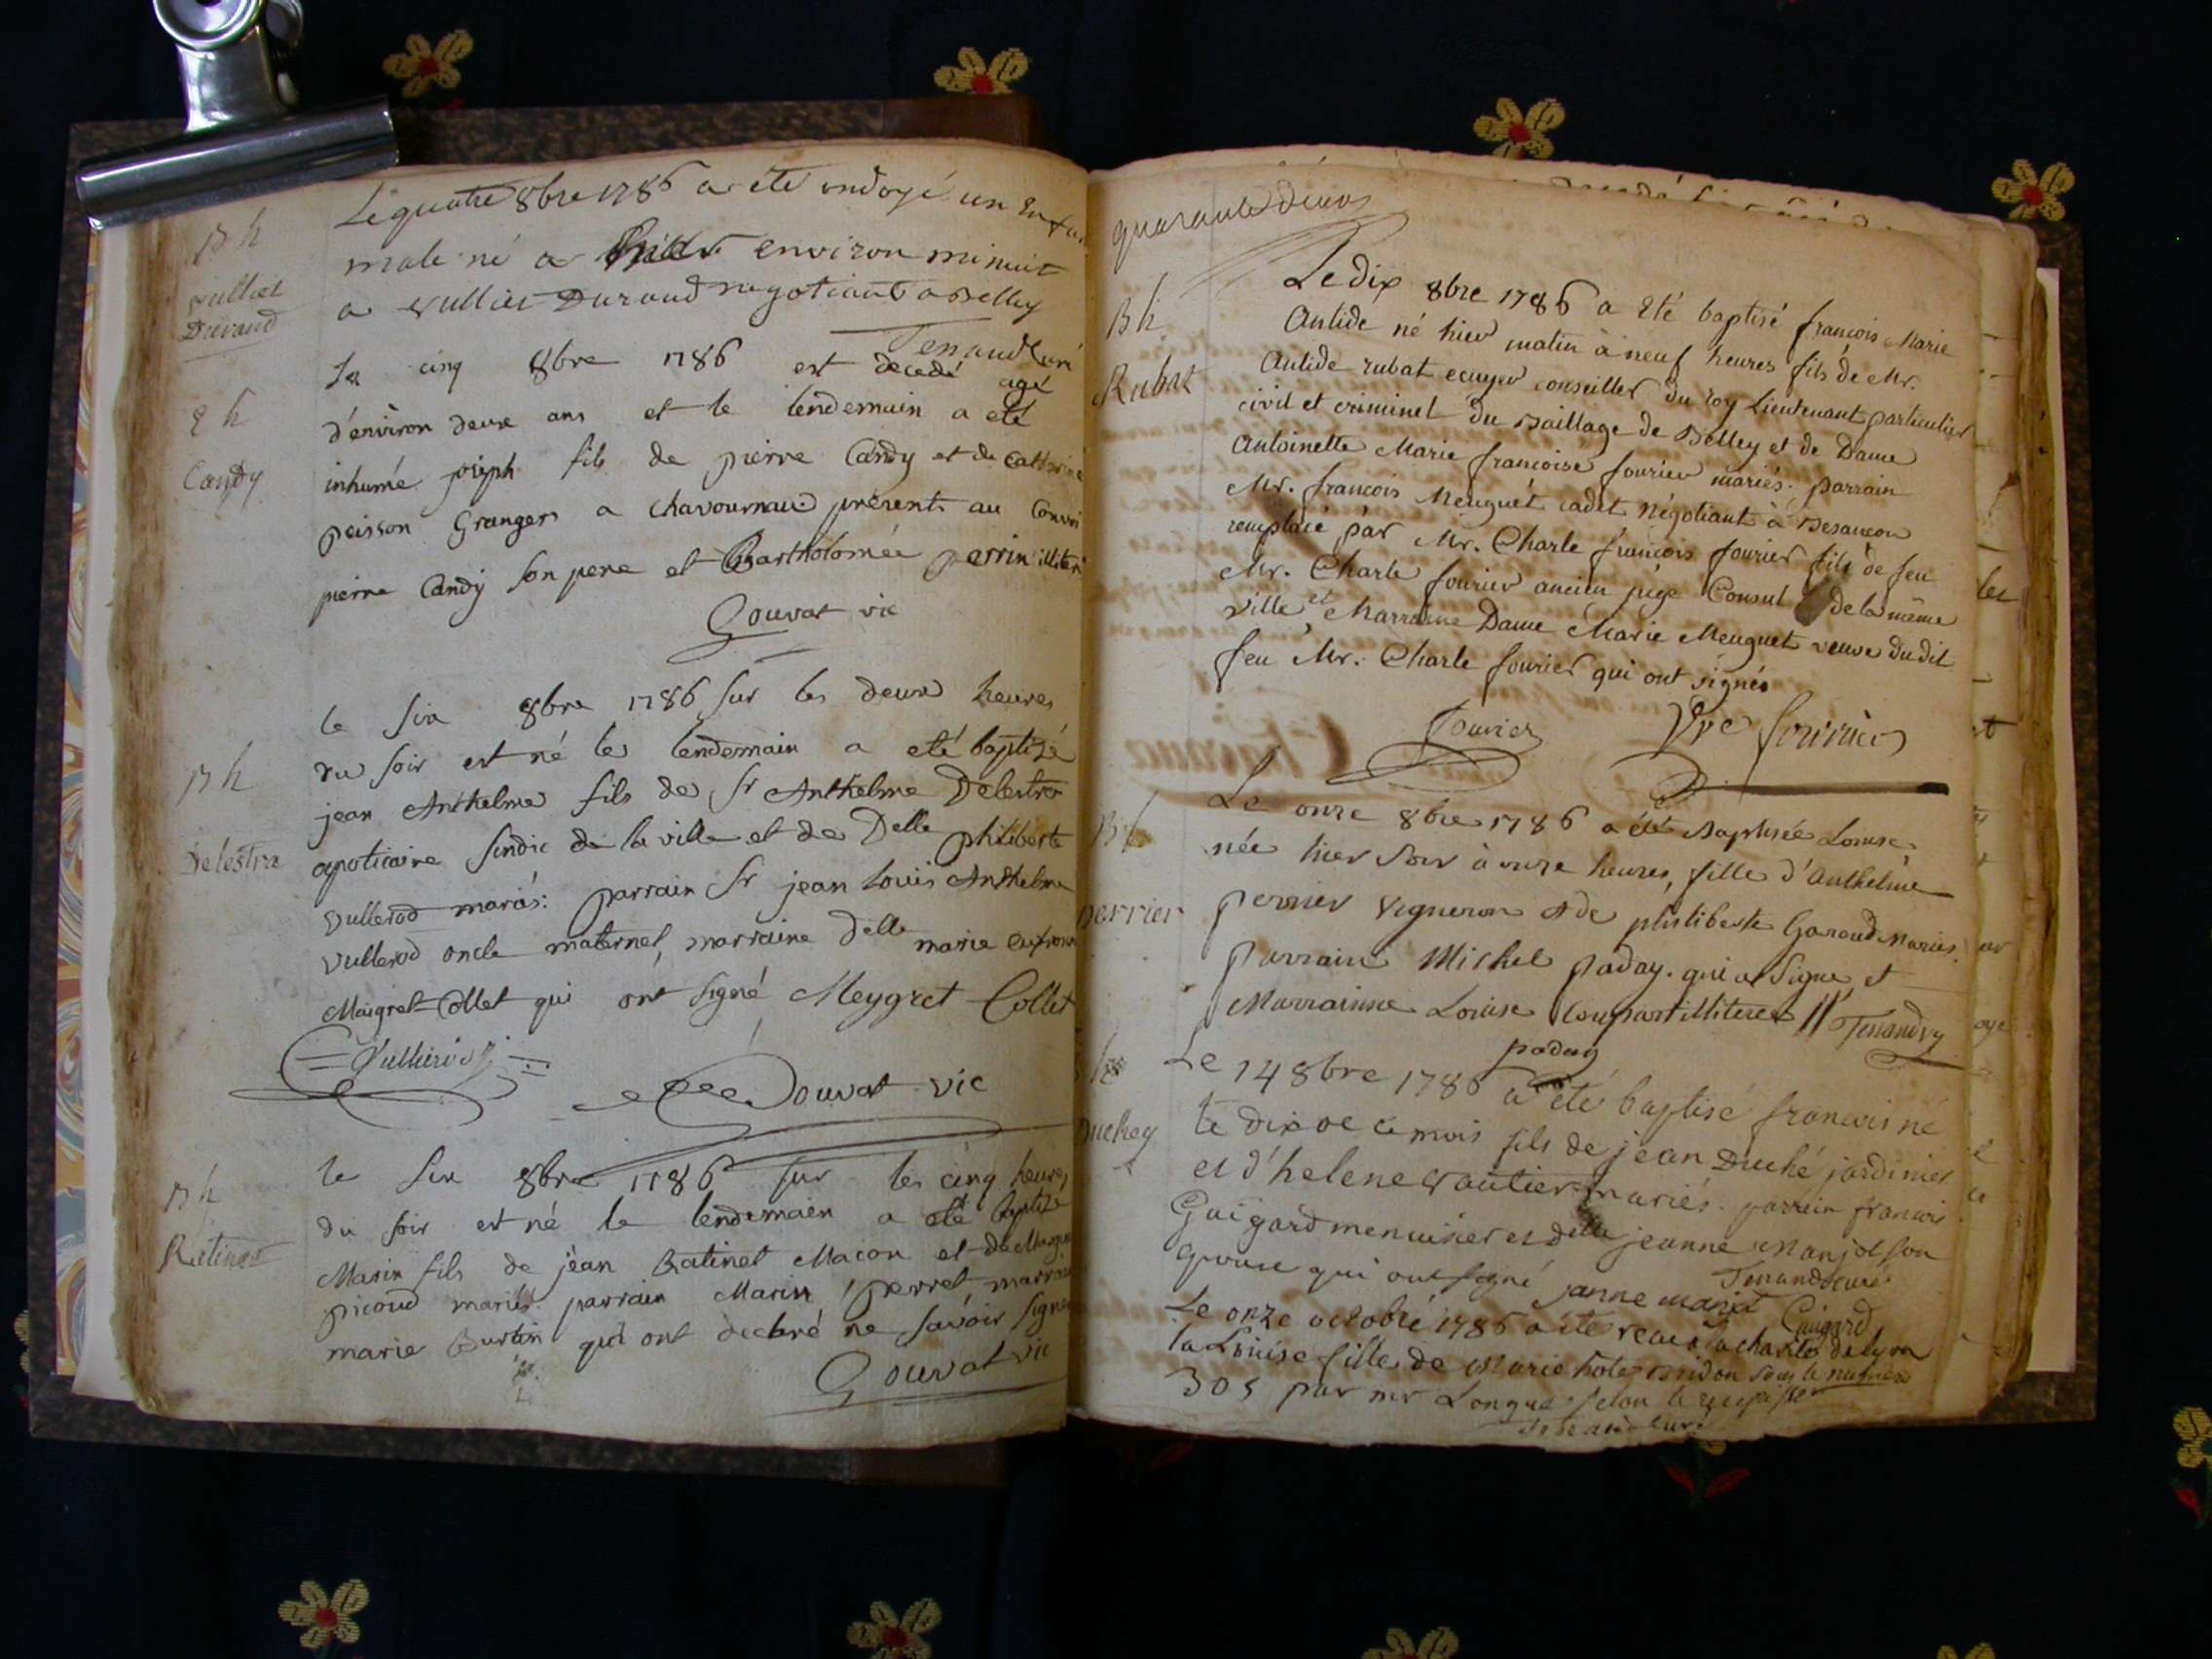 B h
Vulliet
Durand
Le quatre 8bre 1786 a été ondoyé un Enfan
male né a environ minuit
a Vulliet Durand negotiant a Belley
Tenand Curé
S h
Candy
Le cinq 8bre 1786 est decedé agé
d'environ deux ans et le lendemain a eté
inhumé joseph fils de pierre Candy et de Catherine
peisson Grangers a Chavournau présents au Convoi
pierre Candy son pere et Bartholomée perrin illiteré
Gouvat vic
B h
Delestra
le six 8bre 1786 sur les deux heures
du soir est né les lendemain a eté baptizé
jean Anthelme fils de Sr Anthelme Delestra
apoticaire sindic de la ville et de Delle philiberte
Vullerod mariés: parrain Sr jean Louis Anthelme
Vullerod oncle maternel, marraine Delle marie
Maigret-Collet qui ont signé Meygret Collet
Gouvat vic
B h
Ratinet
le six 8bre 1786 sur les cinq heures
du soir est né le lendemain a eté baptizé
Marin fils de jean Ratinet Macon et de
picoud mariés. parrain Marin perret, marrai
marie Burtin qui ont declaré ne savoir signer
Gouvat vic
quarante deux
B h
Rubat
Le dix 8bre 1786 a Eté baptisé françois Marie
Antide né hier matin à neuf heures fils de Mr.
Antide rubat ecuyer conseiller du roy Lieutenant particulier
civil et criminel du Baillage de Belley et de Dame
Antoinette Marie françoise fourier mariés. parrain
Mr. françois Meuguet cadet Négotiant à Besançon
remplacé par Mr. Charle françois fourier fils de feu
Mr. Charle fourier ancien juge Consul de la même
ville, et Marraine Dame Marie Meuguet veuve dudit
feu Mr. Charle fourier qui ont signés
fourier Vve fourrier
B h
perrier
Le onze 8bre 1786 a été Baptisée Louise
née hier soir à onze heures, fille d'Anthelme
perrier Vigneron et de philiberte Garoud Mariés.
parrain Michel paday. qui a Signé, et
Marrainne Louise Compart illiterés // Tenand Vy
paday
Duchey
Le 14 8bre 1786 a été baptisé francois né
le dix de ce mois fils de jean Duché jardinier
et d'helene Vautier mariés. parrein francois
Guigard menuisier et delle jeanne Manjot son
epouse qui ont signé janne manjot Tenand curé
Guigard
Le onze octobre 1786 a été recue a la charité de lyon
la Louise fille de Marie hote Bridon sous le numero
305 par mr Longue selon le